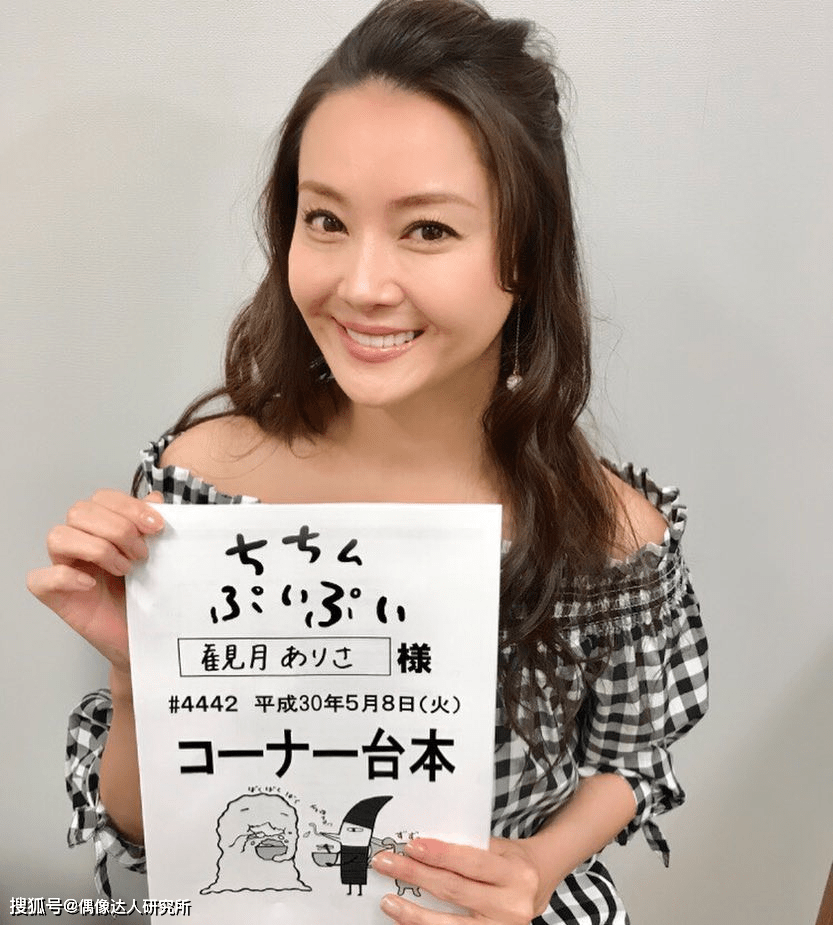 ちちんぷいぷい
観月ありさ 様
#4442 平成30年5月8日(火)
コーナー台本
ぱくぱくぱく
ずず
搜狐号@偶像达人研究所